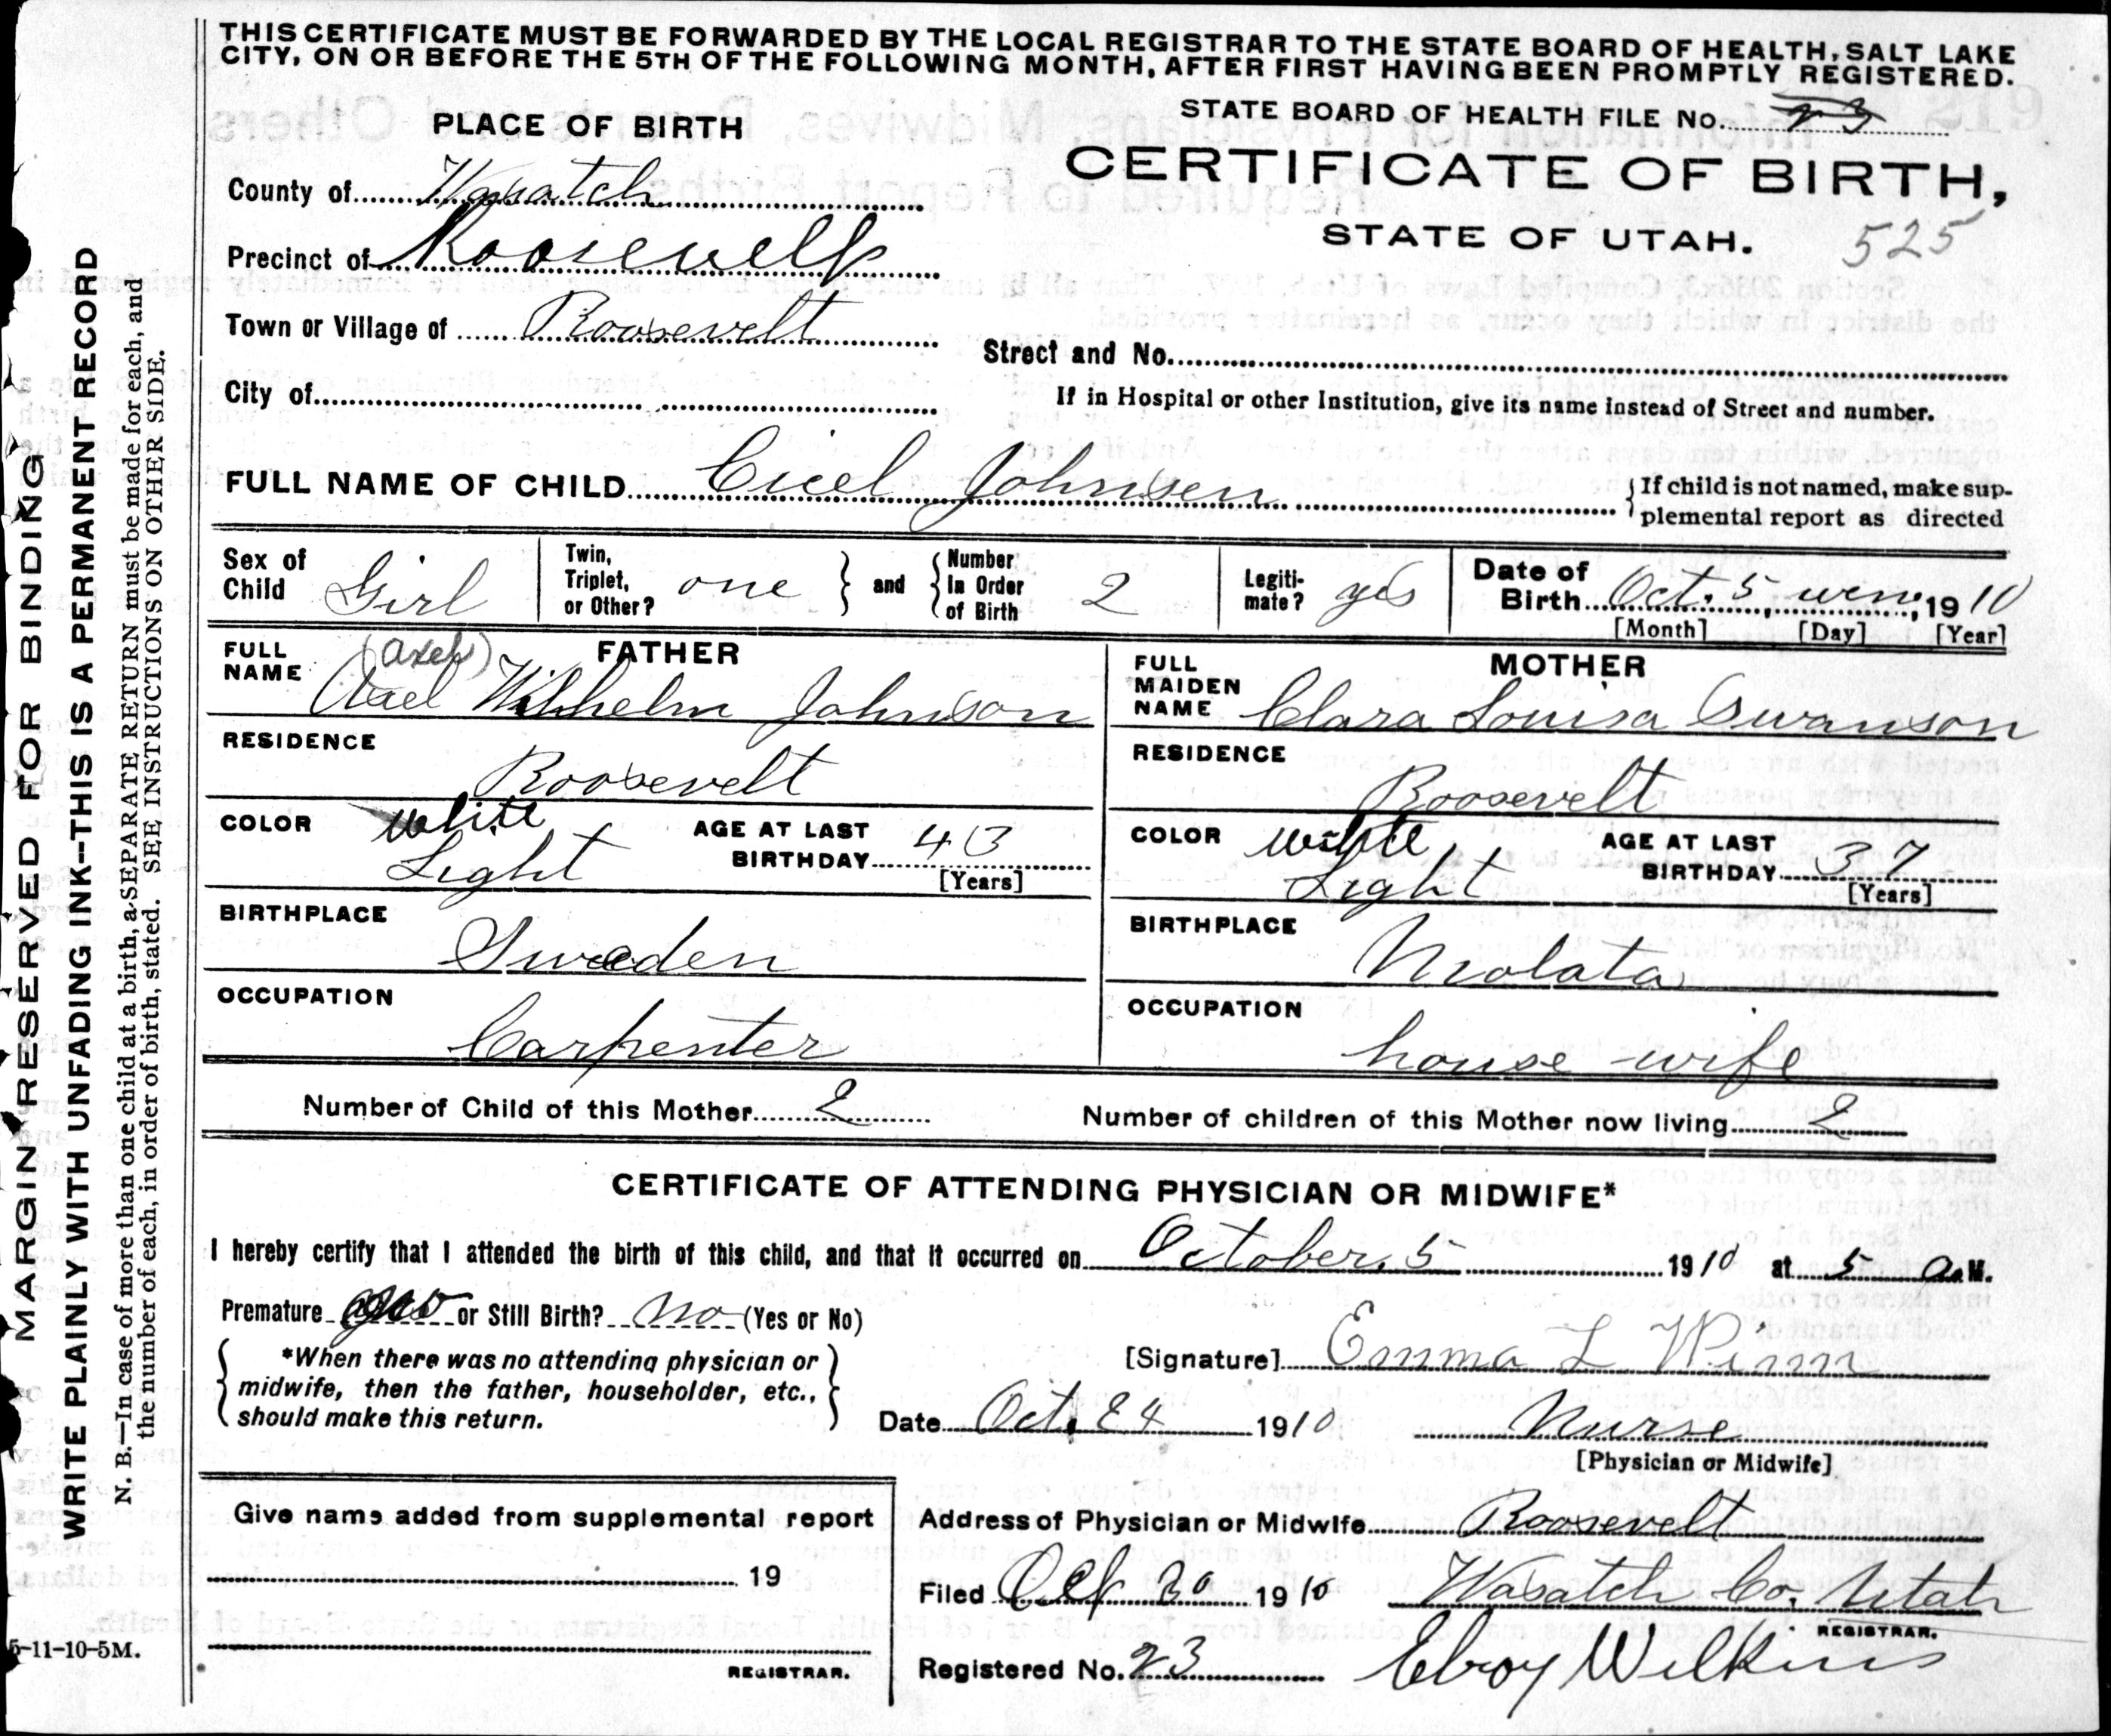 THIS CERTIFICATE MUST BE FORWARDED BY THE LOCAL REGISTRAR TO THE STATE BOARD OF HEALTH, SALT LAKE
CITY, ON OR BEFORE THE 5TH OF THE FOLLOWING MONTH, AFTER FIRST HAVING BEEN PROMPTLY REGISTERED.
STATE BOARD OF HEALTH FILE No. 23
PLACE OF BIRTH
CERTIFICATE OF BIRTH,
STATE OF UTAH. 525
County of Wasatch
Precinct of Roosevelt
Town or Village of Roosevelt
Street and No.
City of
If in Hospital or other Institution, give its name instead of Street and number.
FULL NAME OF CHILD Cicel Johnson
If child is not named, make sup-
plemental report as directed
Sex of Child Girl
Twin, Triplet, or Other? one
and Number In Order of Birth 2
Legiti-mate? yes
Date of Birth Oct. 5 wen, 1910
[Month] [Day] [Year]
FATHER
FULL NAME (axel)
Axel Wilhelm Johnson
RESIDENCE
Roosevelt
COLOR white
Light
AGE AT LAST BIRTHDAY 43
[Years]
BIRTHPLACE
Sweden
OCCUPATION
Carpenter
MOTHER
FULL MAIDEN NAME Clara Louisa Swanson
RESIDENCE
Roosevelt
COLOR white
Light
AGE AT LAST BIRTHDAY 37
[Years]
BIRTHPLACE
OCCUPATION
house wife
Number of Child of this Mother 2
Number of children of this Mother now living 2
CERTIFICATE OF ATTENDING PHYSICIAN OR MIDWIFE*
I hereby certify that I attended the birth of this child, and that it occurred on October, 5 1910 at 5 a. M.
Premature or Still Birth? no (Yes or No)
*When there was no attending physician or
midwife, then the father, householder, etc.,
should make this return.
[Signature] Emma L Winn
Date Oct. 24 1910
Nurse
[Physician or Midwife]
Give name added from supplemental report
19
REGISTRAR.
Address of Physician or Midwife Roosevelt
Filed Oct 30 1910 Wasatch Co. Utah
REGISTRAR.
Registered No. 23 Elroy Wilkins
MARGIN RESERVED FOR BINDING
WRITE PLAINLY WITH UNFADING INK--THIS IS A PERMANENT RECORD
N. B.—In case of more than one child at a birth, a SEPARATE RETURN must be made for each, and
the number of each, in order of birth, stated. SEE INSTRUCTIONS ON OTHER SIDE.
5-11-10-5M.